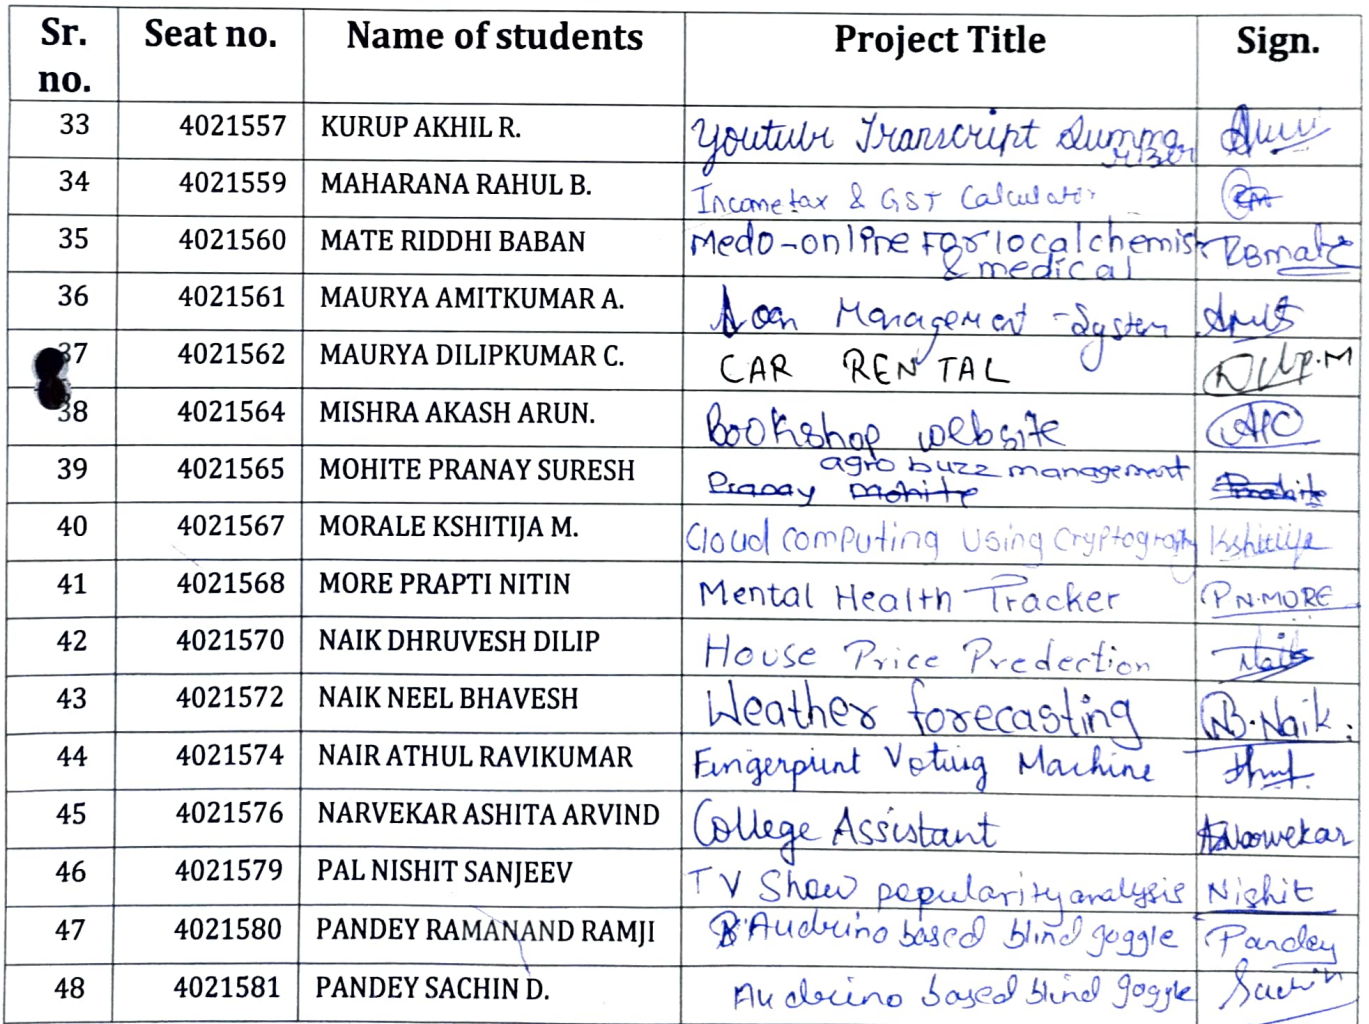 Sr. no. Seat no. Name of students Project Title Sign.
33 4021557 KURUP AKHIL R. Youtube Transcript Summa
rizer
34 4021559 MAHARANA RAHUL B. Incometax & GST Calculator
35 4021560 MATE RIDDHI BABAN Medo-online For local chemist RBmate
& medical
36 4021561 MAURYA AMITKUMAR A. Loan Management -System Amit
37 4021562 MAURYA DILIPKUMAR C. CAR RENTAL Dilip.M
38 4021564 MISHRA AKASH ARUN. Bookshop website
39 4021565 MOHITE PRANAY SURESH agro buzz management
Pranay Mohite
40 4021567 MORALE KSHITIJA M. Cloud computing Using Cryptography Kshitija
41 4021568 MORE PRAPTI NITIN Mental Health Tracker P N.MORE
42 4021570 NAIK DHRUVESH DILIP House Price Predection Naik
43 4021572 NAIK NEEL BHAVESH Weather forecasting NB.Naik.
44 4021574 NAIR ATHUL RAVIKUMAR Fingerprint Voting Machine
45 4021576 NARVEKAR ASHITA ARVIND College Assistant Narvekar
46 4021579 PAL NISHIT SANJEEV TV Show popularity analysis Nishit
47 4021580 PANDEY RAMANAND RAMJI Audrino based blind goggle Pandey
48 4021581 PANDEY SACHIN D. Audrino based blind goggle Sachin